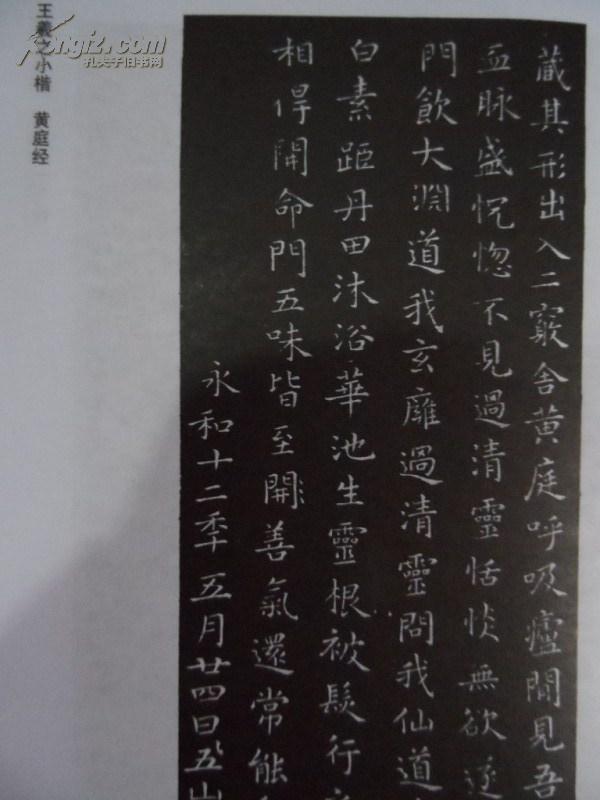 王羲之小楷 黄庭经
Kongfz.com
孔夫子旧书网
藏其形出入二竅舍黄庭呼吸廬間見吾
血脉盛恍惚不見過清靈恬惔無欲遂
門飲大淵道我玄廱過清靈問我仙道
白素距丹田沐浴華池生靈根被髮行
相得開命門五味皆至開善氣還常能
永和十二年五月廿四日五山